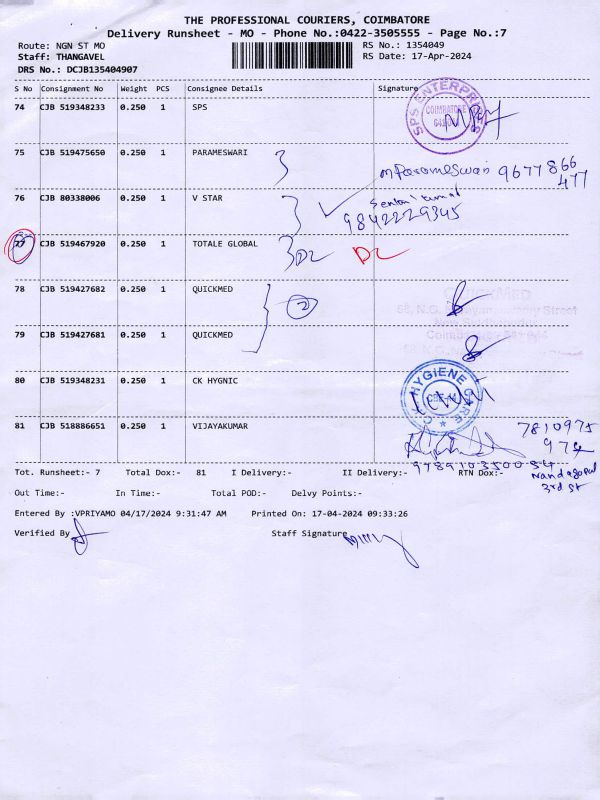 THE PROFESSIONAL COURIERS, COIMBATORE
Delivery Runsheet - MO - Phone No.:0422-3505555 - Page No.:7
Route: NGN ST MO RS No.: 1354049
Staff: THANGAVEL RS Date: 17-Apr-2024
DRS No.: DCJB135404907
S No Consignment No Weight PCS Consignee Details Signature
74 CJB 519348233 0.250 1 SPS
SPS ENTERPRISES
COIMBATORE
75 CJB 519475650 0.250 1 PARAMESWARI
9677866
477
76 CJB 80338006 0.250 1 V STAR
9842229345
77 CJB 519467920 0.250 1 TOTALE GLOBAL DL DL
78 CJB 519427682 0.250 1 QUICKMED
2
79 CJB 519427681 0.250 1 QUICKMED
80 CJB 519348231 0.250 1 CK HYGNIC
HYGIENE CARE
81 CJB 518886651 0.250 1 VIJAYAKUMAR
7810975
974
Tot. Runsheet:- 7 Total Dox:- 81 I Delivery:- II Delivery:- RTN Dox:-
Nandagopal
3rd st
Out Time:- In Time:- Total POD:- Delvy Points:-
Entered By :VPRIYAMO 04/17/2024 9:31:47 AM Printed On: 17-04-2024 09:33:26
Verified By Staff Signature